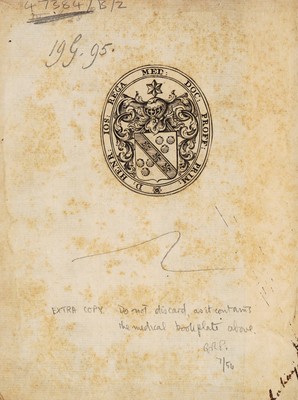 47384/B/2
19G.95.
D. HENR. IOS. REGA MED: DOC. PROFF. PRIM.
EXTRA COPY Do not discard, as it contains
the medical bookplate above.
7/56